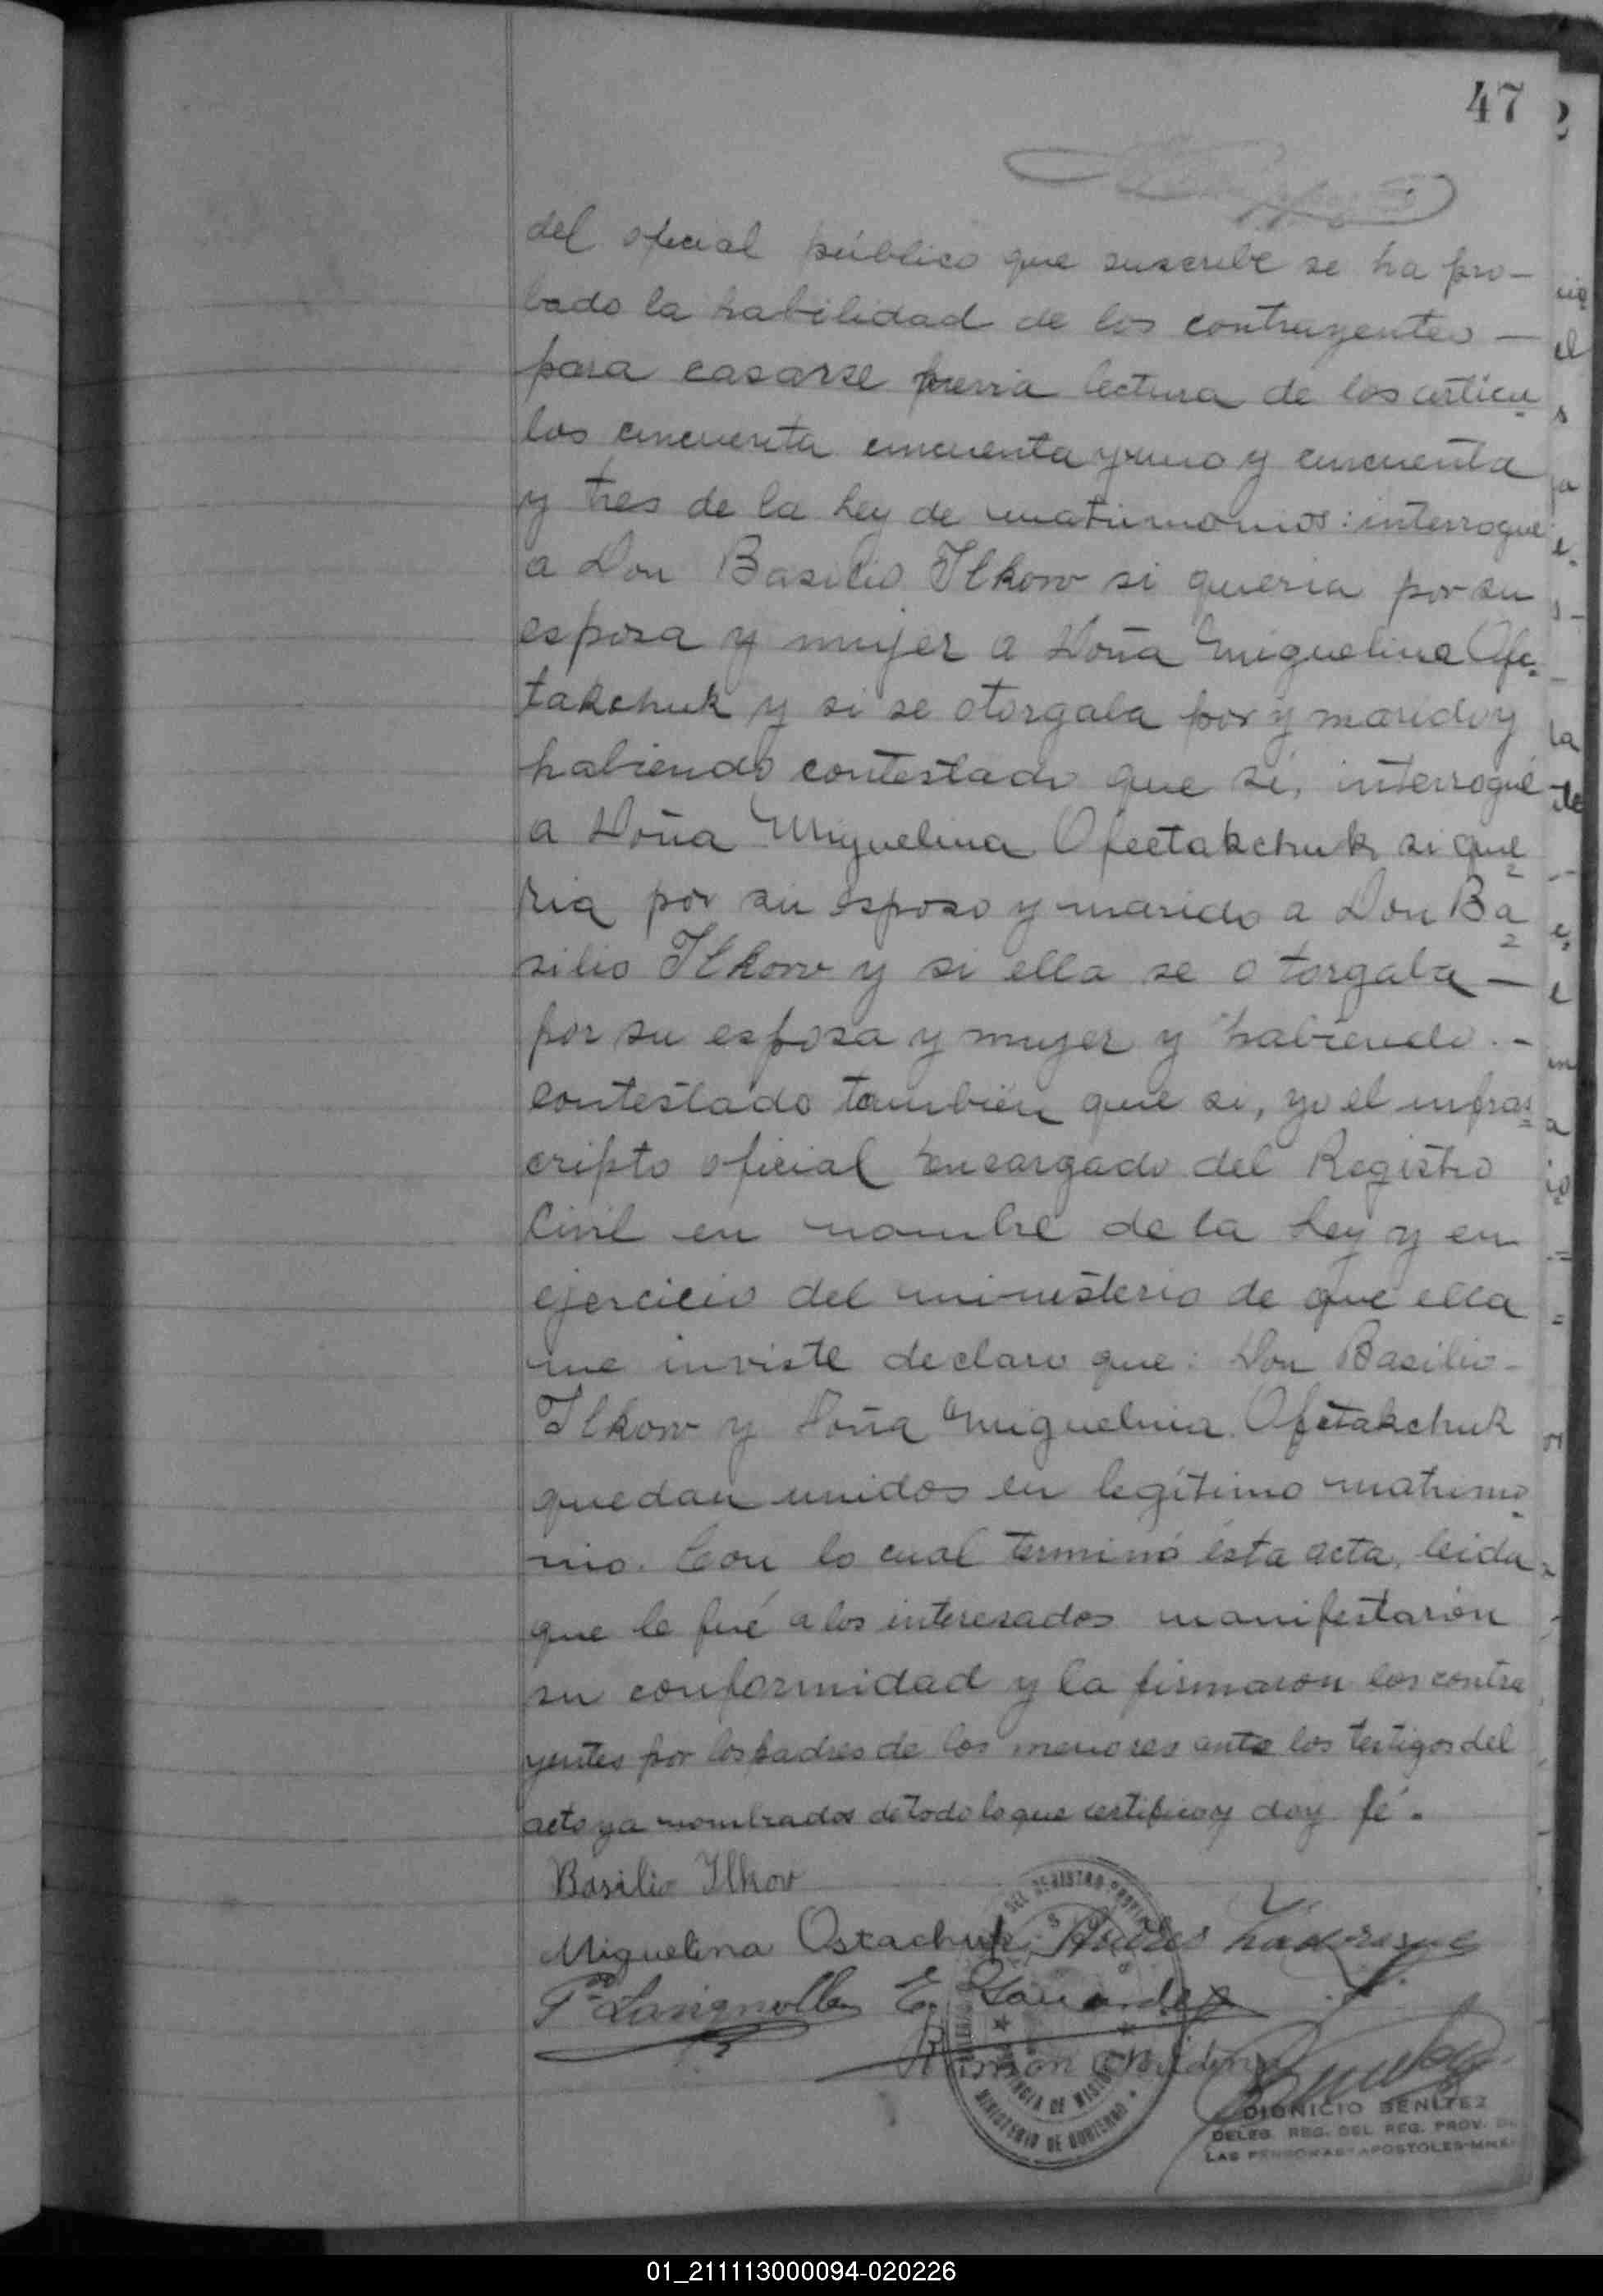 47
del oficial público que suscribe se ha pro-
bado la habilidad de los contrayentes —
para casarse previa lectura de los articu
los cincuenta cincuenta y uno y cincuenta
y tres de la Ley de matrimonios: interrogué
a Don Basilio Ilkow si queria por su
esposa y mujer a Doña Miguelina Ofe-
takchuk y si se otorgaba por y marido y
habiendo contestado que si, interrogué
a Doña Miguelina Ofeetakchuk si que
ria por su esposo y marido a Don Ba
silio Ilkow y si ella se otorgaba —
por su esposa y mujer y habiendo . -
contestado también que si, yo el infras
cripto oficial encargado del Registro
Civil en nombre de la Ley y en
ejercicio del ministerio de que ella
me inviste declaro que: Don Basilio -
Ilkow y Doña Miguelina Ofetakchuk
quedan unidos en legítimo matrimo
nio. Con lo cual terminó ésta acta, leida
que le fué a los interesados manifestarón
su conformidad y la firmaron los contra
yentes por los padres de los menores ante los testigos del
acto ya nombrados de todo lo que certifico y doy fé.
Basilio Ilkov
Miguelina Ostachuk
Ramón
DEL REGISTRO PROVIN
MINISTERIO DE GOBIERNO
DIONICIO BENITEZ
DELEG. REG. DEL REG. PROV. DE
LAS PERSONAS-APOSTOLES-MNES
01_211113000094-020226